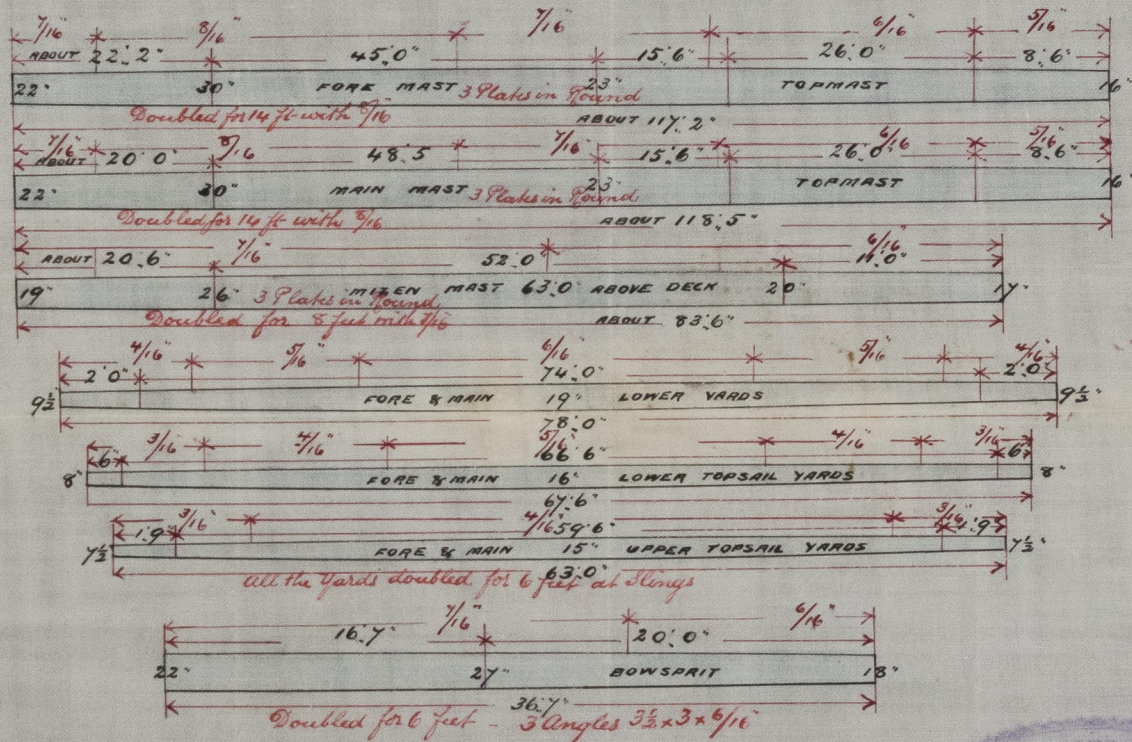 7/16" 8/16" 7/16" 6/16" 5/16"
ABOUT 22'.2" 45'.0" 15'.6" 26'.0" 8'.6"
22" 30" FORE MAST 3 Plates in Round 23" TOPMAST 16"
Doubled for 14 ft with 8/16 ABOUT 117'.2"
7/16" 8/16" 7/16" 6/16" 5/16"
ABOUT 20'0" 48'.5 15'.6" 26'.0" 8'.6"
22" 30" MAIN MAST 3 Plates in Round 23" TOPMAST 16"
Doubled for 14 ft with 8/16 ABOUT 118'.5"
7/16" 6/16"
ABOUT 20'.6" 52'.0" 11'.0"
19" 26" 3 Plates in Round MIZEN MAST 63'.0" ABOVE DECK 20" 17"
Doubled for 8 feet with 7/16 ABOUT 83'.6"
4/16" 5/16" 6/16" 5/16" 4/16"
2'0" 74'.0" 2'.0"
9½" FORE & MAIN 19" LOWER YARDS 9½"
78'.0"
3/16" 4/16" 5/16" 4/16" 3/16"
6" 66'.6" 6"
8" FORE & MAIN 16" LOWER TOPSAIL YARDS 8"
67'.6"
3/16" 4/16" 3/16"
1'.9" 59'.6" 1'.9"
7½" FORE & MAIN 15" UPPER TOPSAIL YARDS 7½"
63'.0"
All the Yards doubled for 6 feet at Slings
7/16" 6/16"
16'.7" 20'.0"
22" 27" BOWSPRIT 18"
36'.7"
Doubled for 6 feet - 3 Angles 3½ x 3 x 6/16"